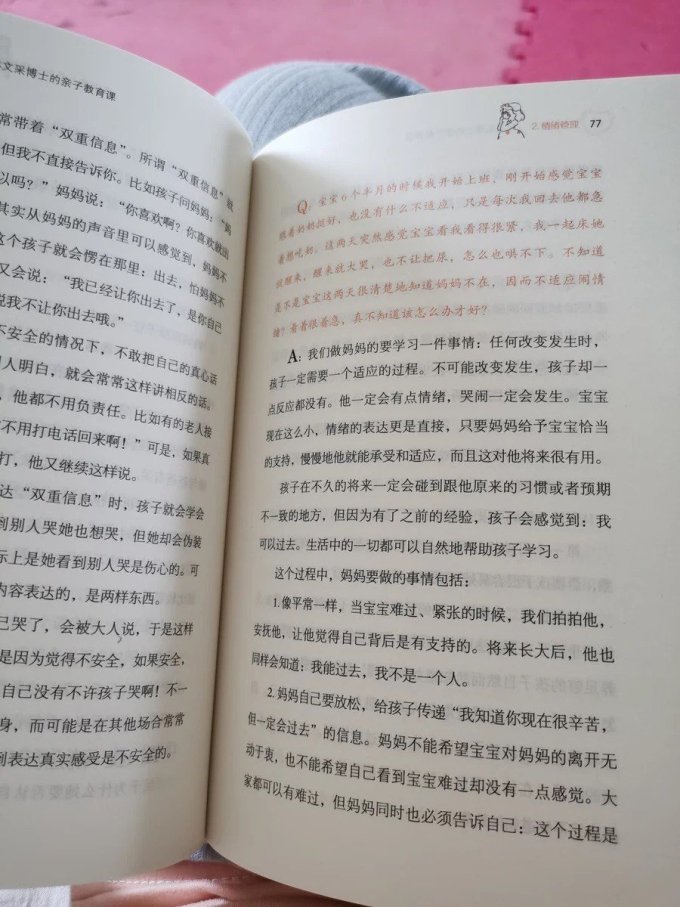 文采博士的亲子教育课
常带着“双重信息”。所谓“双重信息”就
但我不直接告诉你。比如孩子问妈妈：“妈
以吗？”妈妈说：“你喜欢啊？你喜欢就出
其实从妈妈的声音里可以感觉到，妈妈不
这个孩子就会愣在那里：出去，怕妈妈不
又会说：“我已经让你出去了，是你自己
说我不让你出去哦。”
不安全的情况下，不敢把自己的真心话
别人明白，就会常常这样讲相反的话。
，他都不用负责任。比如有的老人接
不用打电话回来啊！”可是，如果真
打，他又继续这样说。
达“双重信息”时，孩子就会学会
到别人哭她也想哭，但她却会伪装
际上是她看到别人哭是伤心的。可
内容表达的，是两样东西。
己哭了，会被大人说，于是这样
是因为觉得不安全，如果安全，
自己没有不许孩子哭啊！不一
身，而可能是在其他场合常常
到表达真实感受是不安全的。
2. 情绪管理 77
Q：宝宝6个半月的时候我开始上班，刚开始感觉宝宝
跟着奶奶挺好，也没有什么不适应，只是每次我回去他都急
着想吃奶。这两天突然感觉宝宝看我看得很紧，我一起床她
就醒来，醒来就大哭，也不让把尿，怎么也哄不下。不知道
是不是宝宝这两天很清楚地知道妈妈不在，因而不适应闹情
绪？看着很着急，真不知道该怎么办才好？
A：我们做妈妈的要学习一件事情：任何改变发生时，
孩子一定需要一个适应的过程。不可能改变发生，孩子却一
点反应都没有。他一定会有点情绪，哭闹一定会发生。宝宝
现在这么小，情绪的表达更是直接，只要妈妈给予宝宝恰当
的支持，慢慢地他就能承受和适应，而且这对他将来很有用。
孩子在不久的将来一定会碰到跟他原来的习惯或者预期
不一致的地方，但因为有了之前的经验，孩子会感觉到：我
可以过去。生活中的一切都可以自然地帮助孩子学习。
这个过程中，妈妈要做的事情包括：
1.像平常一样，当宝宝难过、紧张的时候，我们拍拍他，
安抚他，让他觉得自己背后是有支持的。将来长大后，他也
同样会知道：我能过去，我不是一个人。
2.妈妈自己要放松，给孩子传递“我知道你现在很辛苦，
但一定会过去”的信息。妈妈不能希望宝宝对妈妈的离开无
动于衷，也不能希望自己看到宝宝难过却没有一点感觉。大
家都可以有难过，但妈妈同时也必须告诉自己：这个过程是